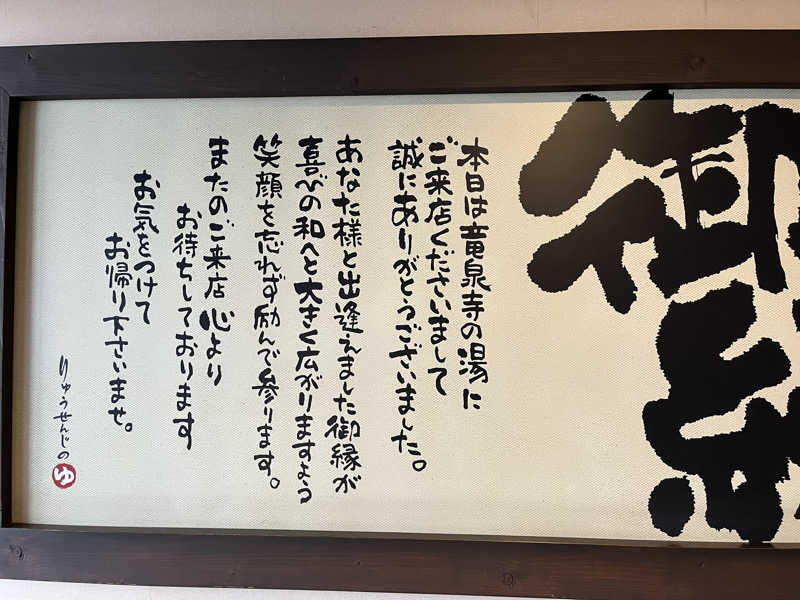 御縁
本日は竜泉寺の湯に
ご来店くださいまして
誠にありがとうございました。
あなた様と出逢えました御縁が
喜びの和へと大きく広がりますよう
笑顔を忘れず励んで参ります。
またのご来店心より
お待ちしております
お気をつけて
お帰り下さいませ。
りゅうせんじの
ゆ